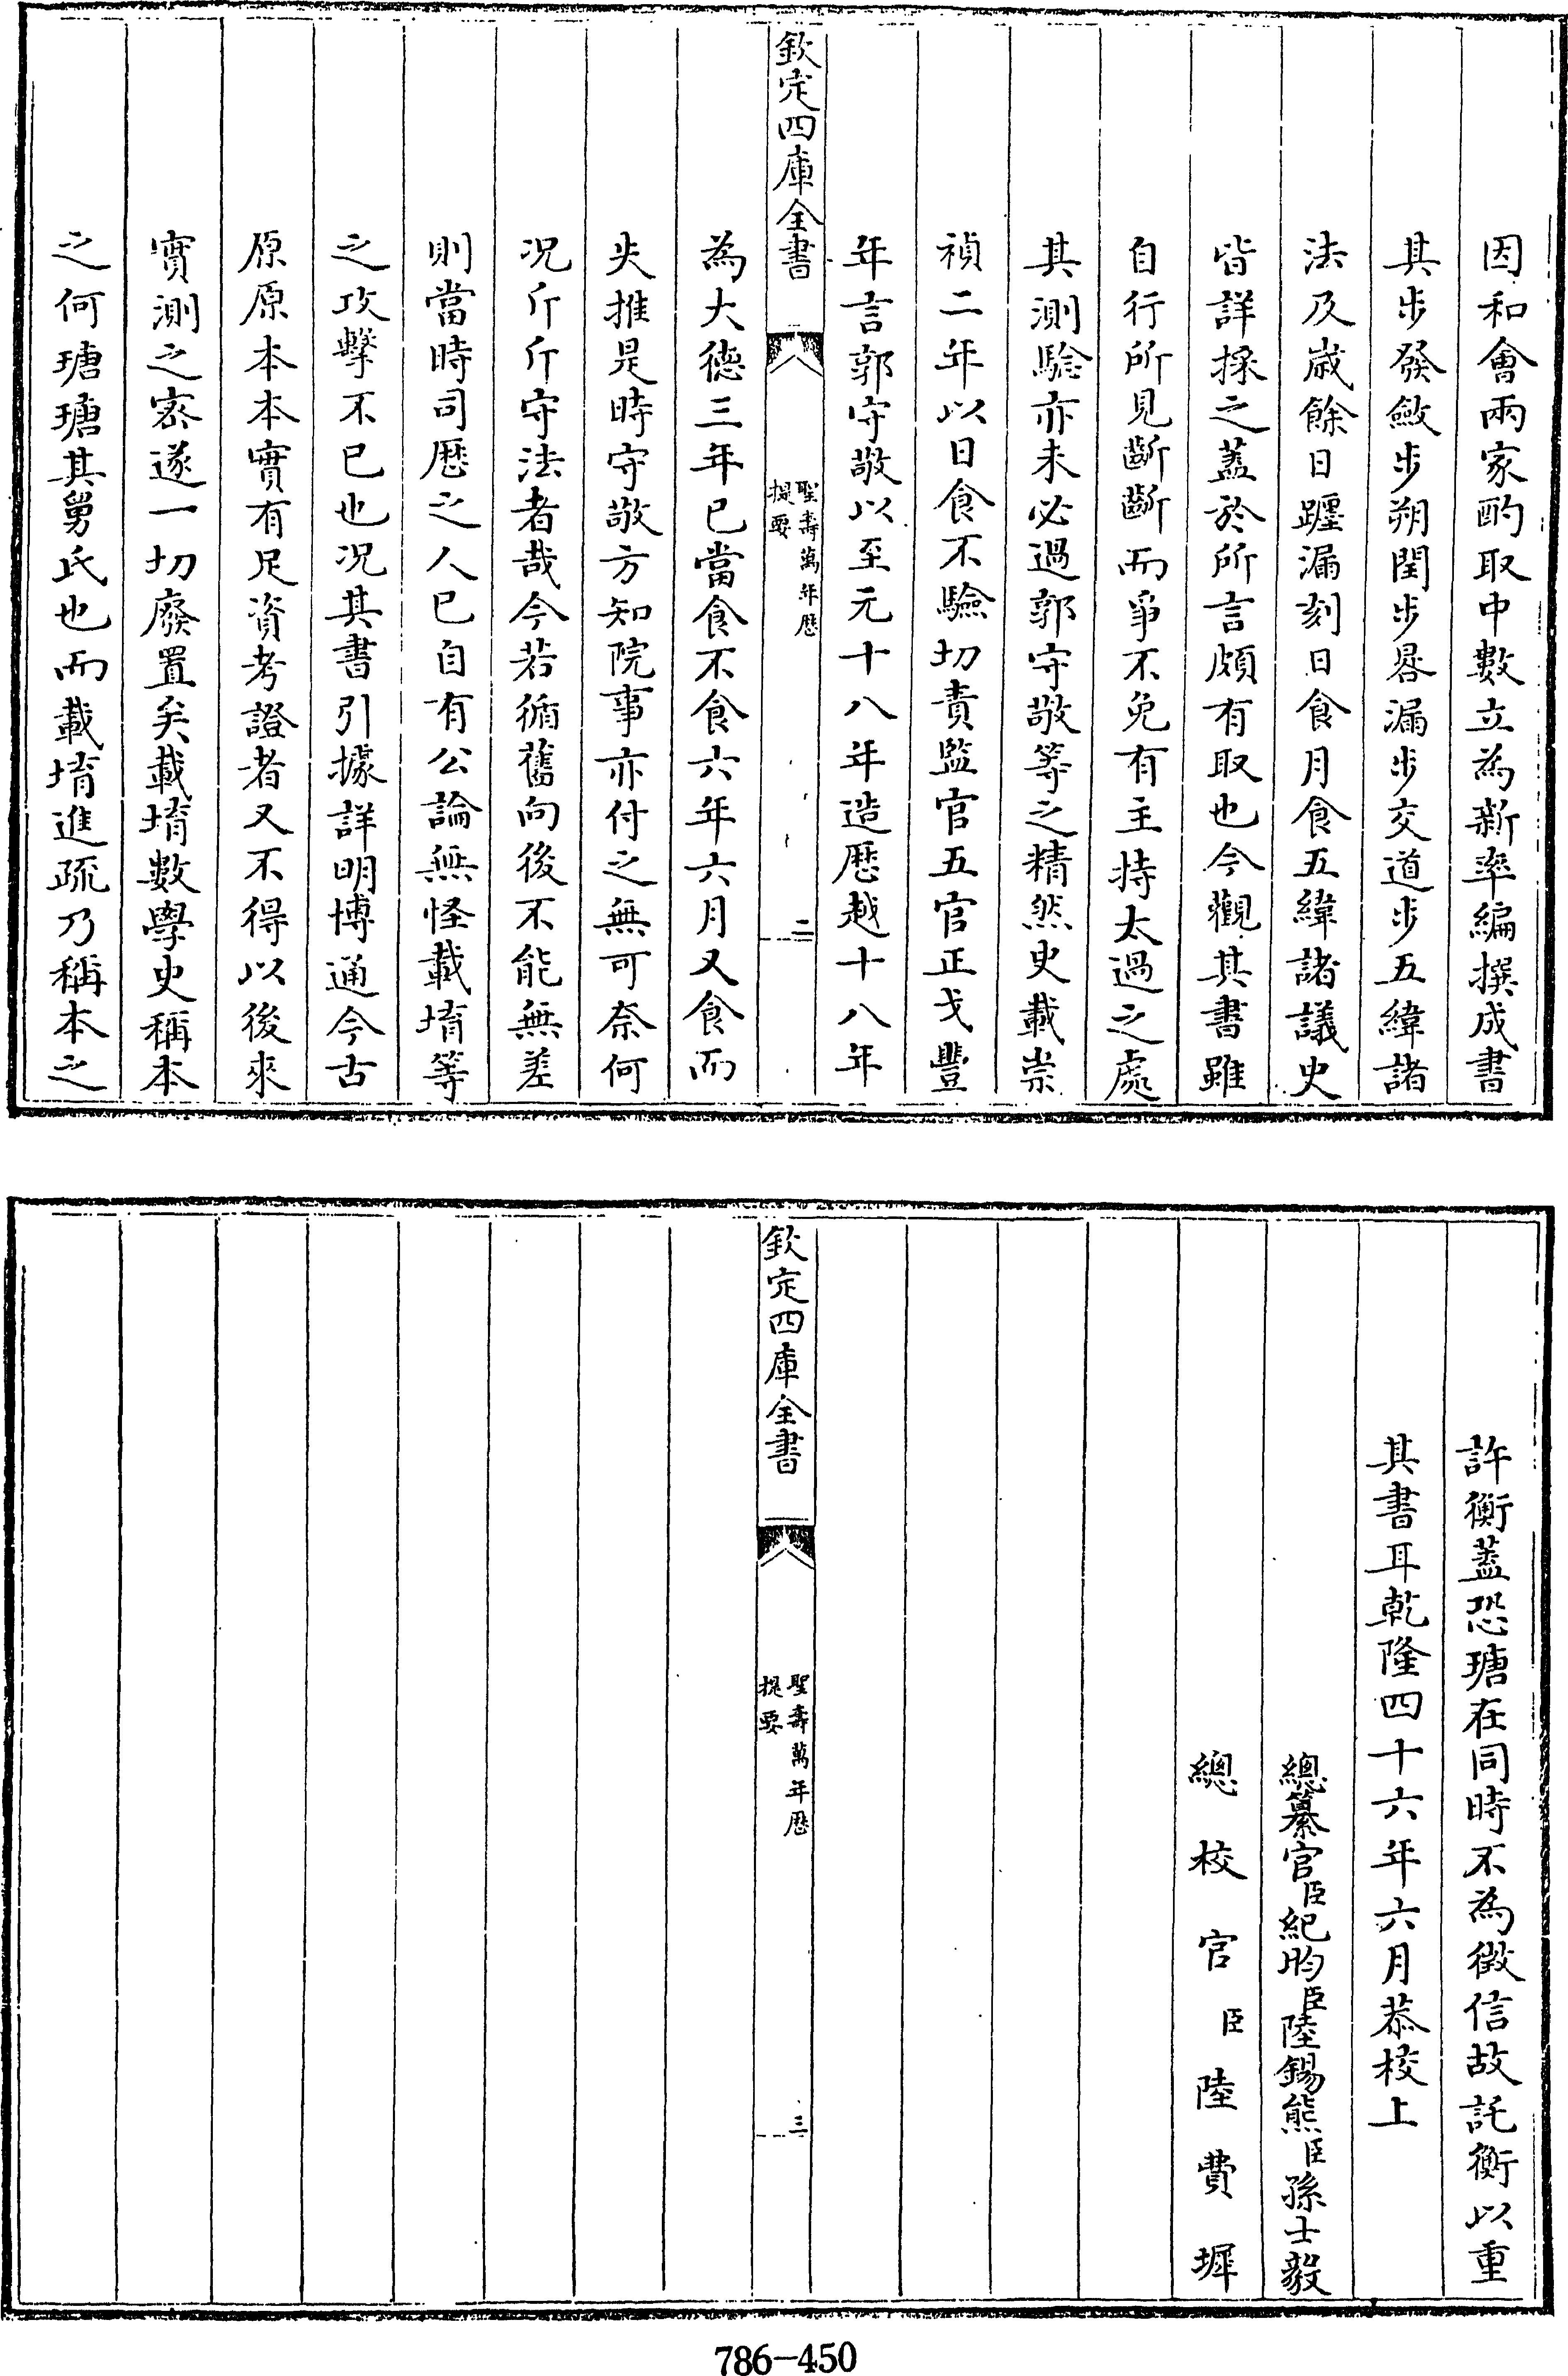 因和會兩家酌取中數立為新率編撰成書
其步發斂步朔閏步晷漏步交道步五緯諸
法及歲餘日躔漏刻日食月食五緯諸議史
皆詳採之蓋於所言頗有取也今觀其書雖
自行所見斷斷而爭不免有主持太過之處
其測驗亦未必過郭守敬等之精然史載崇
禎二年以日食不驗切責監官五官正戈豐
年言郭守敬以至元十八年造厯越十八年
欽定四庫全書
聖壽萬年厯
提要
二
為大德三年已當食不食六年六月又食而
失推是時守敬方知院事亦付之無可奈何
况斤斤守法者哉今若循舊向後不能無差
則當時司厯之人已自有公論無怪載堉等
之攻擊不已也况其書引據詳明博通今古
原原本本實有足資考證者又不得以後來
實測之密遂一切廢置矣載堉數學史稱本
之何瑭瑭其舅氏也而載堉進疏乃稱本之
許衡蓋恐瑭在同時不為徵信故託衡以重
其書耳乾隆四十六年六月恭校上
總纂官臣紀昀臣陸錫熊臣孫士毅
總校官臣陸費墀
欽定四庫全書
聖壽萬年厯
提要
三
786-450